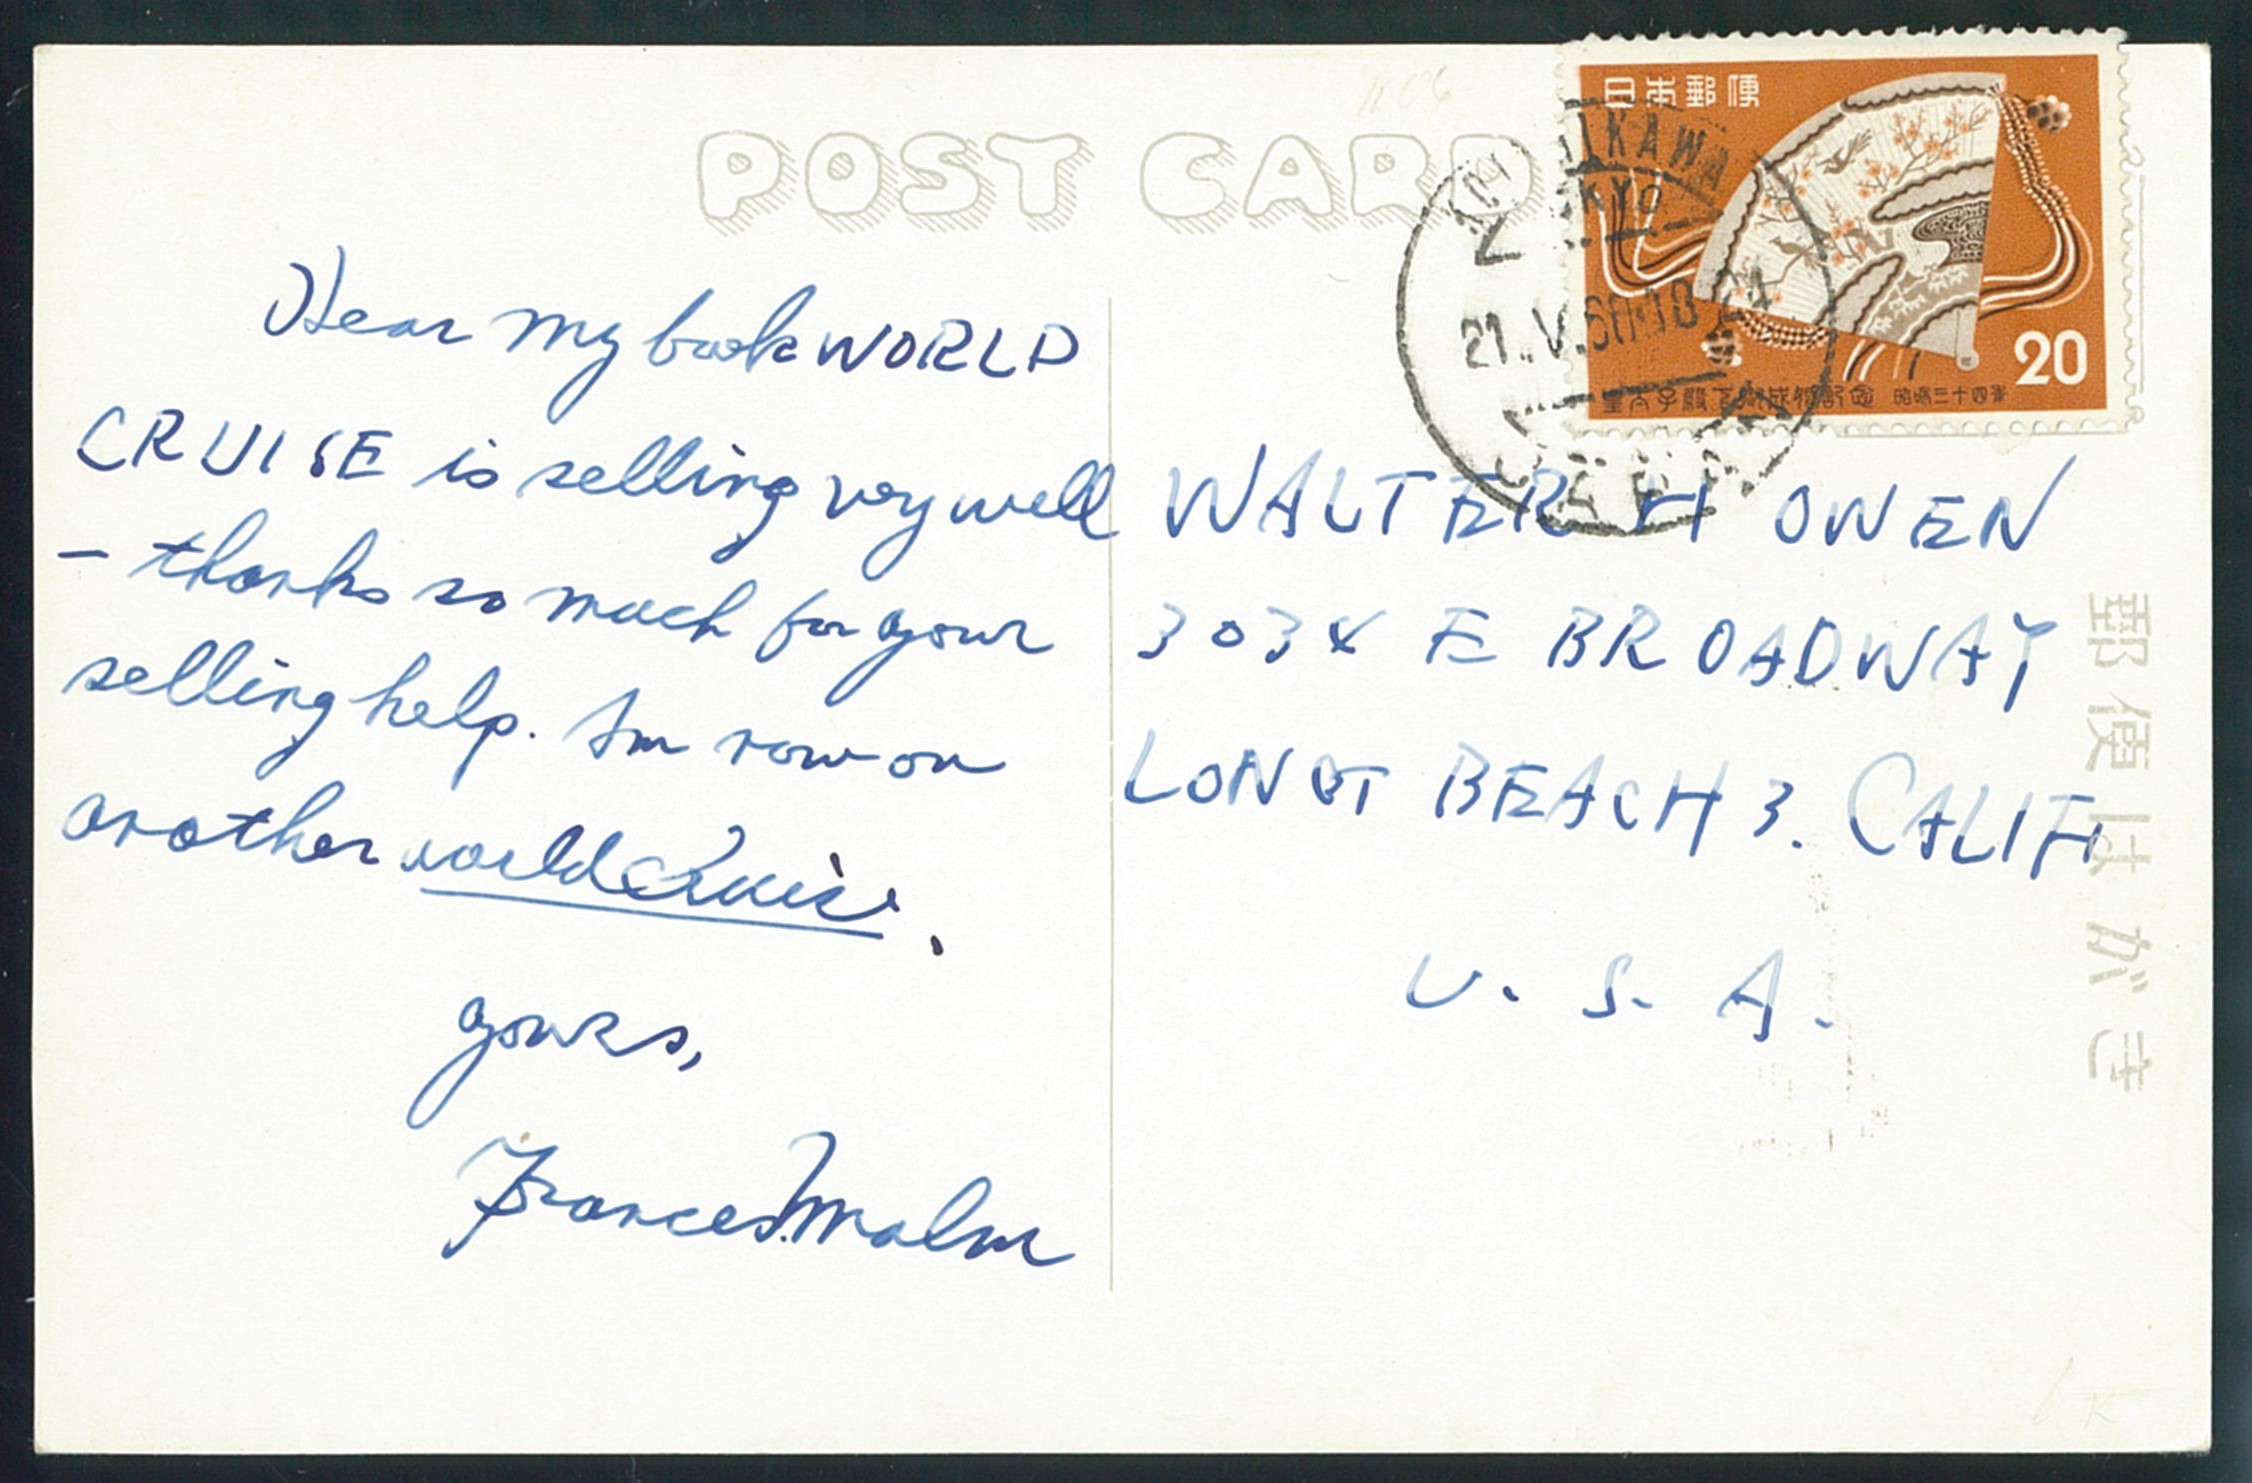 POST CARD
日本郵便
20
皇太子殿下御成婚記念 昭和三十四年
TOKYO
21.V.
Hear my book WORLD
CRUISE is selling very well
- thanks so much for your
selling help. Am now on
another world Cruise.
yours,
Frances Malm
WALTER H OWEN
E BROADWAY
LONG BEACH 3. CALIF
U. S. A.
郵便はがき